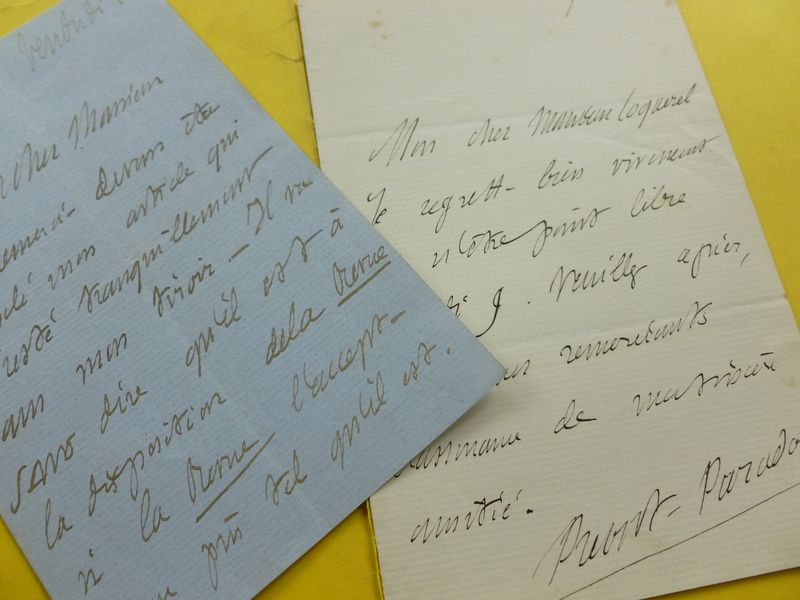 Vendredi
cher Monsieur
devers été
mon article qui
resté tranquillement
mon tiroir - Il va
sans dire qu'il est à
la disposition de la Revue
si la Revue l'accepte
pris tel qu'il est.
Mon cher Monsieur Coquerel
Je regrette bien vivement
n'être point libre
9. Veuillez agréer,
remerciements
l'assurance de ma sincère
amitié.
Prevost-Parado